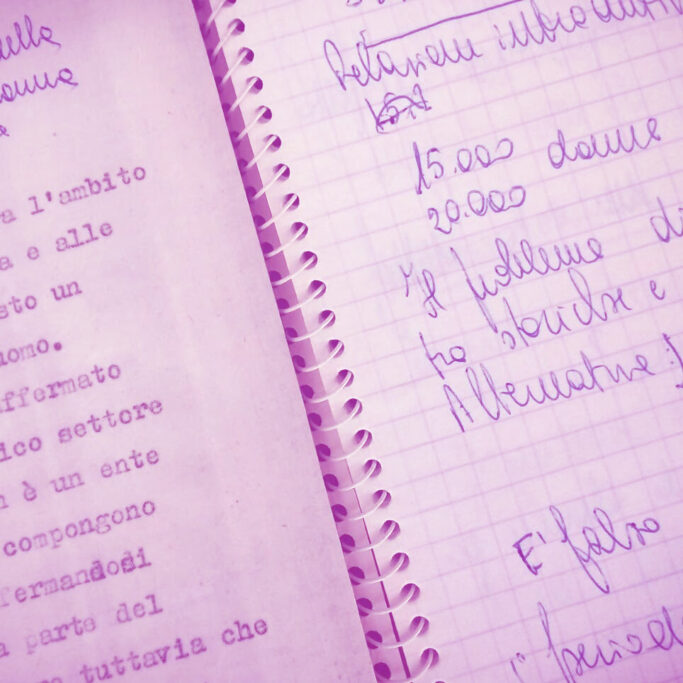 nella
donna
a l'ambito
a e alle
sto un
uomo.
ffermato
ico settore
n è un ente
compongono
fermandosi
a parte del
tuttavia che
Relazioni introduttive
15.000 donne
20.000
"Il problema di
tra storiche e
Alternative :
E' falso
"period